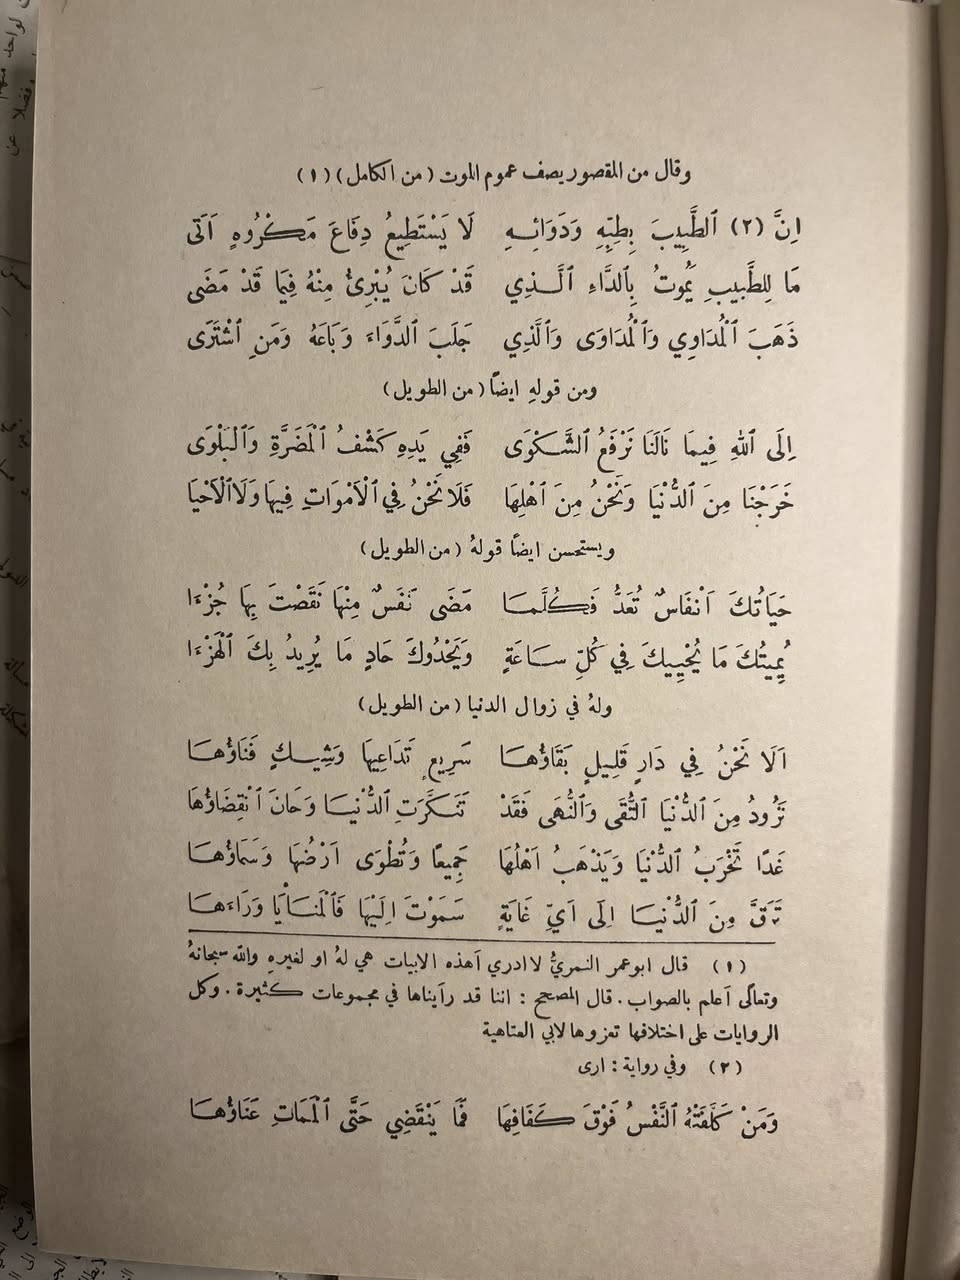 وقال من المقصور يصف عموم الموت (من الكامل) (١)
اِنَّ (٢) ٱلطَّبِيبَ بِطِبِّهِ وَدَوَائِـهِ لَا يَسْتَطِيعُ دِفَاعَ مَكْرُوهٍ اَتَى
مَا لِلطَّبِيبِ يَمُوتُ بِٱلدَّاءِ ٱلَّـذِي قَدْ كَانَ يُبْرِئُ مِنْهُ فِيَمَا قَدْ مَضَى
ذَهَبَ ٱلْمُدَاوِي وَٱلْمُدَاوَى وَٱلَّذِي جَلَبَ ٱلدَّوَاءَ وَبَاعَهُ وَمَنِ ٱشْتَرَى
ومن قولهِ ايضًا (من الطويل)
اِلَى ٱللهِ فِيمَا نَالَنَا نَرْفَعُ ٱلشَّكْوَى فَفِي يَدِهِ كَشْفُ ٱلْمَضَرَّةِ وَٱلْبَلْوَى
خَرَجْنَا مِنَ ٱلدُّنْيَا وَنَحْنُ مِنَ اَهْلِهَا فَلَا نَحْنُ فِي ٱلْاَمْوَاتِ فِيهَا وَلَا ٱلْاَحْيَا
ويستحسن ايضًا قولهُ (من الطويل)
حَيَاتُكَ اَنْفَاسٌ تُعَدُّ فَكُلَّمَـا مَضَى نَفَسٌ مِنْهَا نَقَصْتَ بِهَا جُزْءَا
يُمِيتُكَ مَا يُحْيِيكَ فِي كُلِّ سَاعَةٍ وَيَحْدُوكَ حَادٍ مَا يُرِيدُ بِكَ ٱلْهَزْءَا
ولهُ في زوال الدنيا (من الطويل)
اَلَا نَحْنُ فِي دَارٍ قَلِيلٍ بَقَاؤُهَـا سَرِيعٍ تَدَاعِيهَا وَشِيـكٍ فَنَاؤُهَـا
تَزَوَّدْ مِنَ ٱلدُّنْيَا ٱلتُّقَى وَٱلنُّهَى فَقَدْ تَنَكَّرَتِ ٱلدُّنْيَـا وَحَانَ ٱنْقِضَاؤُهَا
غَدًا تَخْرَبُ ٱلدُّنْيَا وَيَذْهَبُ اَهْلُهَا جَمِيعًا وَتُطْوَى اَرْضُهَا وَسَمَاؤُهَـا
تَرَقَّ مِنَ ٱلدُّنْيَـا اِلَى اَيِّ غَايَةٍ سَمَوْتَ اِلَيْهَا فَٱلْمَنَـايَا وَرَاءَهَـا
(١) قال ابوعمر النمريُّ لا ادري أهذه الابيات هي لهُ او لغيرهِ والله سبحانهُ
وتعالى أعلم بالصواب. قال المصحح: اننا قد رأيناها في مجموعات كثيرة. وكل
الروايات على اختلافها تعزوها لابي العتاهية
(٢) وفي رواية: ارى
وَمَنْ كَلَّفَتْهُ ٱلنَّفْسُ فَوْقَ كَفَافِهَا فَمَا يَنْقَضِي حَتَّى ٱلْمَمَاتِ عَنَاؤُهَـا